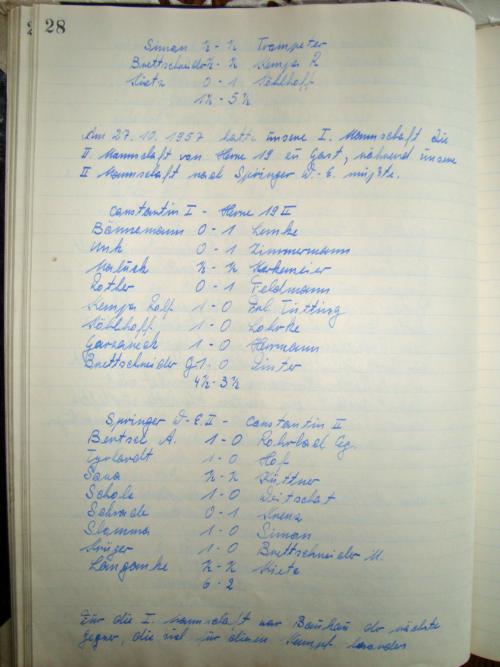 28
Simon ½ - ½ Trompeter
Brettschneider ½ - ½ Kempa R
Kietz 0 - 1 Nöhlhoff
1½ - 5½
Am 27.10.1957 hatte unsere I. Mannschaft die
II. Mannschaft von Herne 19 zu Gast, während unsere
II Mannschaft nach Springer W.-E. mußte.
Constantin I - Herne 19 II
Bönnemann 0 - 1 Lemke
Unk 0 - 1 Zimmermann
½ - ½
Rother 0 - 1 Feldmann
Kempa Rolf 1 - 0 Frl Tütting
Nöhlhoff 1 - 0 Lohrke
Garzaneck 1 - 0 Hermann
Brettschneider G. 1 - 0 Pinter
4½ - 3½
Springer W-E. II - Constantin II
Bentsch A. 1 - 0 Rohrbach Eg.
1 - 0 Hof
Sawa ½ - ½ Küttner
Scholz 1 - 0 Deitschat
Schrade 0 - 1 Krenz
Slomma 1 - 0 Simon
Krüger 1 - 0 Brettschneider M.
Langanke ½ - ½ Kietz
6 - 2
Für die I. Mannschaft war Baukau der nächste
Gegner, die sich für diesen Kampf besonders